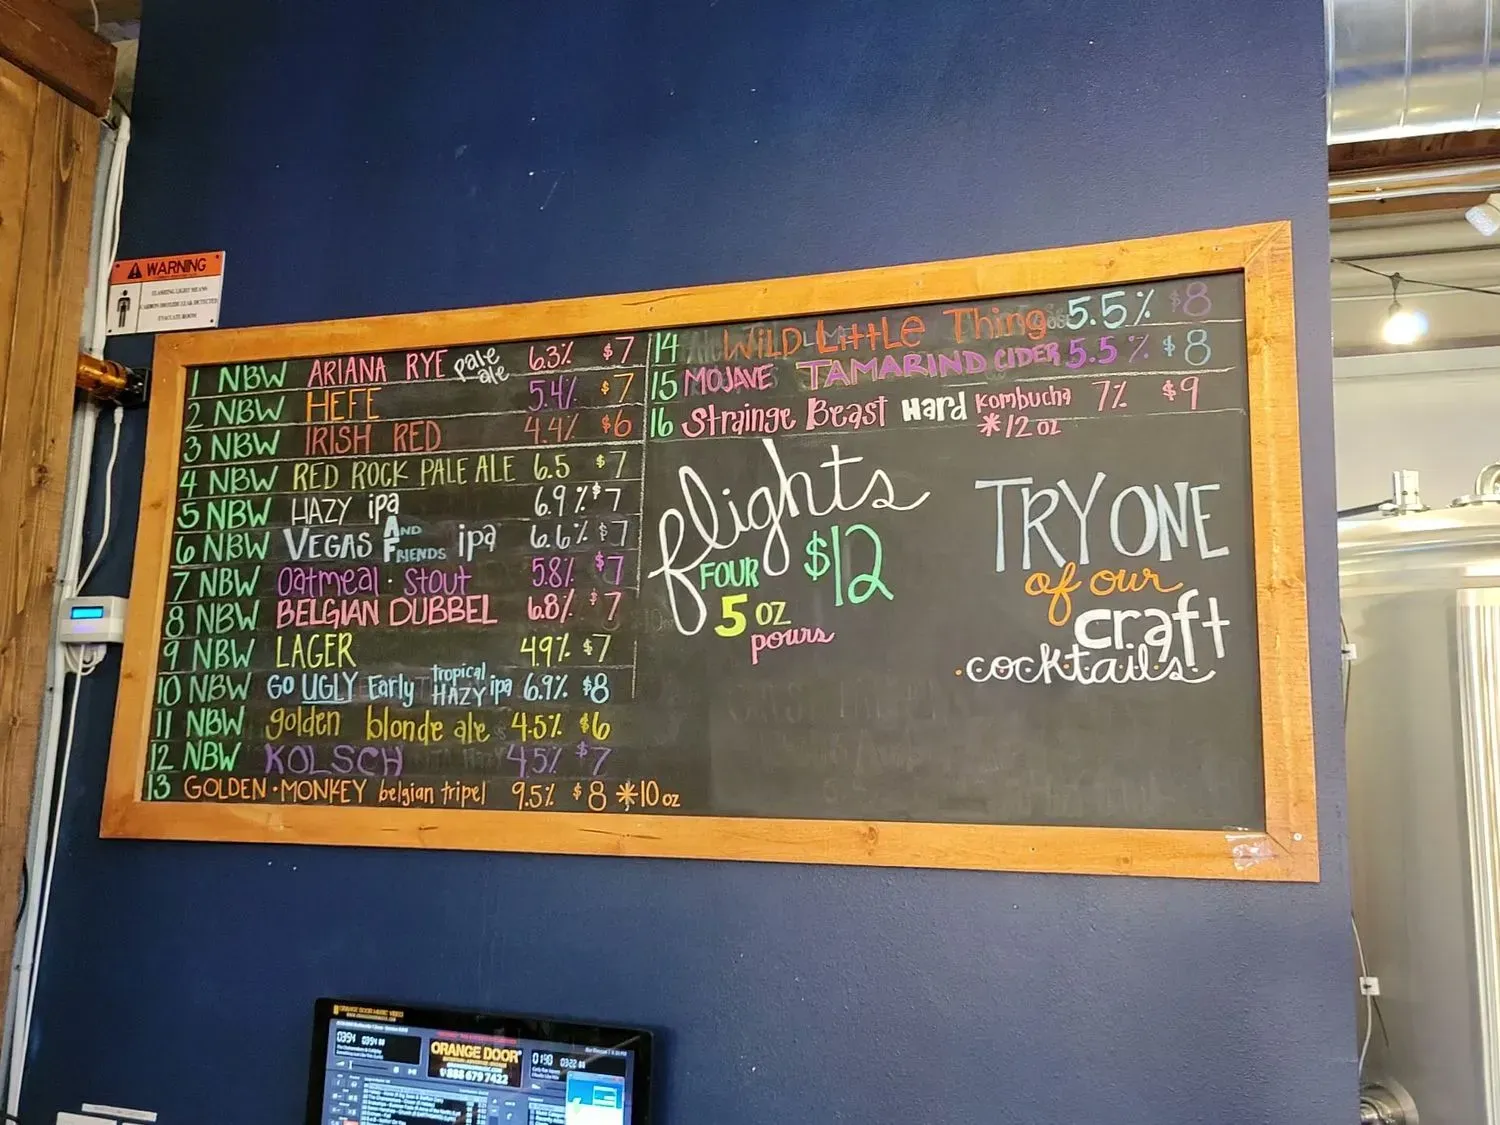 WARNING
FLASHING LIGHT MEANS
CARBON DIOXIDE LEAK DETECTED
EVACUATE ROOM
1 NBW ARIANA RYE pale ale 6.3% $7
2 NBW HEFE 5.4% $7
3 NBW IRISH RED 4.4% $6
4 NBW RED ROCK PALE ALE 6.5 $7
5 NBW HAZY ipa 6.9% $7
6 NBW VEGAS AND FRIENDS ipa 6.6% $7
7 NBW Oatmeal · Stout 5.8% $7
8 NBW BELGIAN DUBBEL 6.8% $7
9 NBW LAGER 4.9% $7
10 NBW GO UGLY Early tropical HAZY ipa 6.9% $8
11 NBW golden blonde ale 4.5% $6
12 NBW KOLSCH 4.5% $7
13 GOLDEN · MONKEY belgian tripel 9.5% $8 *10 oz
14 WILD Little Thing 5.5% $8
15 MOJAVE TAMARIND CIDER 5.5% $8
16 Strainge Beast Hard Kombucha 7% $9
*12 oz
flights
FOUR $12
5 oz
pours
TRY ONE
of our
craft
cocktails
ORANGE DOOR MUSIC VIDEO
ORANGE DOOR
1 888 679 7422